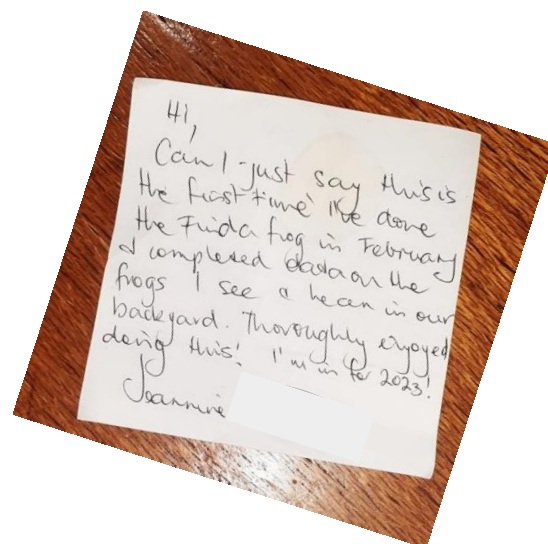 Hi,
Can I just say this is
the first time I've done
the Finda frog in February
& completed data on the
frogs I see & hear in our
backyard. Thoroughly enjoyed
doing this! I'm in for 2023!
Joannine